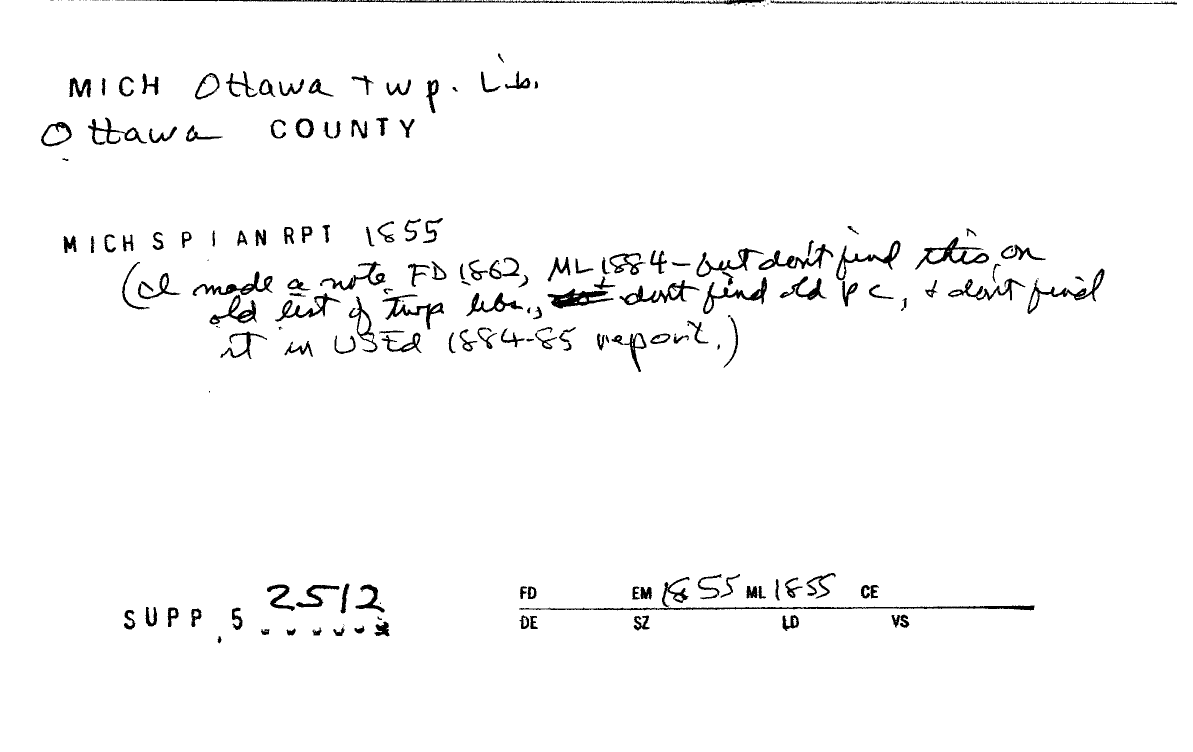 MICH Ottawa Twp. Lib.
Ottawa COUNTY
MICH S P I AN RPT 1855
(I made a note FD 1862, ML 1884 - but don't find this on
old list of twp libs., & don't find old PC, & don't find
it in USEd 1884-85 report.)
SUPP.5 2512
FD EM 1855 ML 1855 CE
DE SZ LD VS